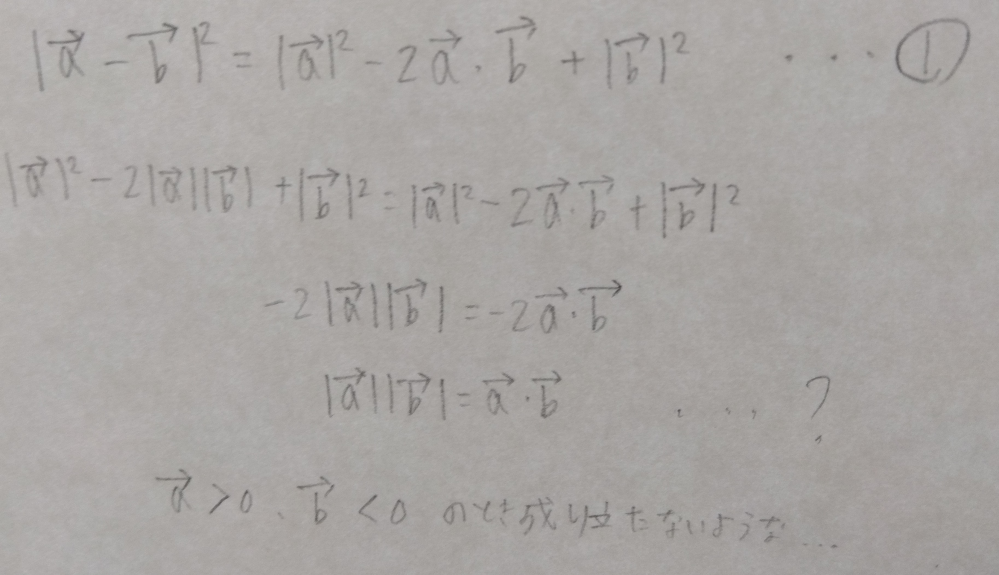 |a⃗ − b⃗|² = |a⃗|² − 2a⃗・b⃗ + |b⃗|² ・・・①
|a⃗|² − 2|a⃗||b⃗| + |b⃗|² = |a⃗|² − 2a⃗・b⃗ + |b⃗|²
−2|a⃗||b⃗| = −2a⃗・b⃗
|a⃗||b⃗| = a⃗・b⃗ ・・・?
a⃗ > 0、b⃗ < 0 のとき成り立たないような...